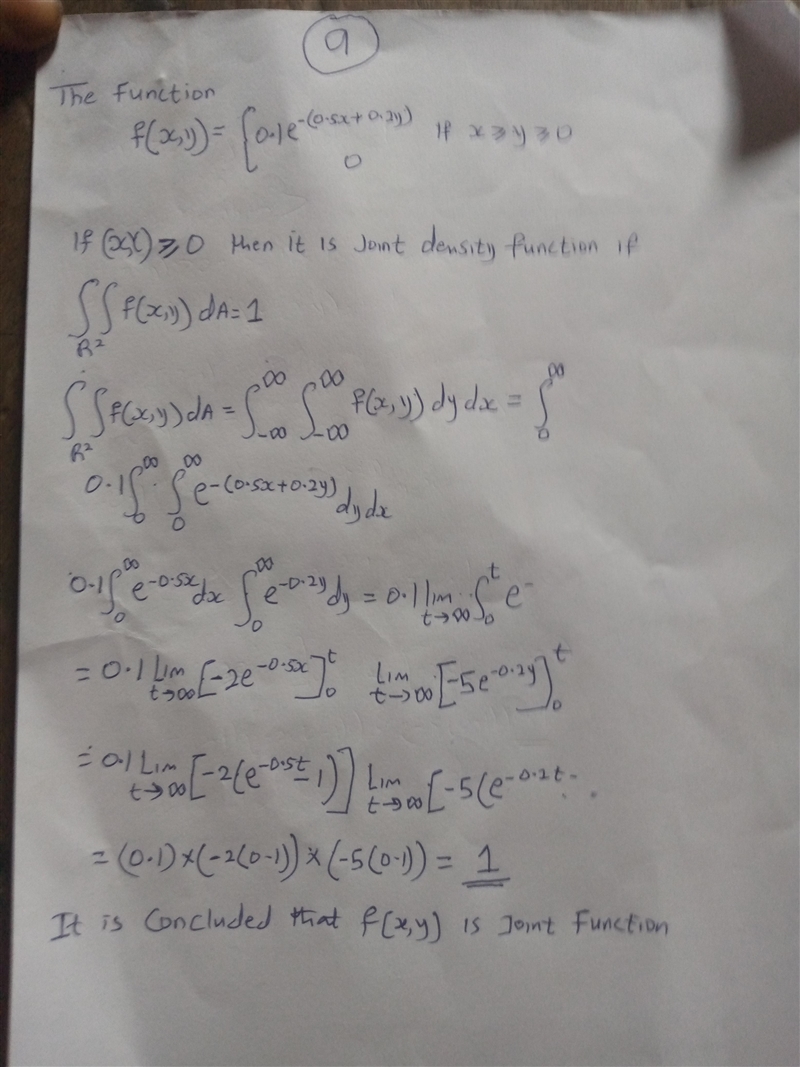 9
The Function
f(x,y) = { 0.1e^-(0.5x+0.2y) If x ≥ y ≥ 0
0
If (x,x) ≥ 0 then it is Joint density function if
∫∫_R² f(x,y) dA = 1
∫∫_R² f(x,y) dA = ∫_-∞^∞ ∫_-∞^∞ f(x,y) dy dx = ∫_0^∞
0.1 ∫_0^∞ ∫_0^∞ e^-(0.5x+0.2y) dy dx
0.1 ∫_0^∞ e^-0.5x dx ∫_0^∞ e^-0.2y dy = 0.1 lim_t→∞ ∫_0^t e^-
= 0.1 Lim_t→∞ [-2e^-0.5x]_0^t Lim_t→∞ [-5e^-0.2y]_0^t
= 0.1 Lim_t→∞ [-2(e^-0.5t - 1)] Lim_t→∞ [-5(e^-0.2t -
= (0.1) × (-2(0-1)) × (-5(0-1)) = 1
It is Concluded that f(x,y) is Joint Function